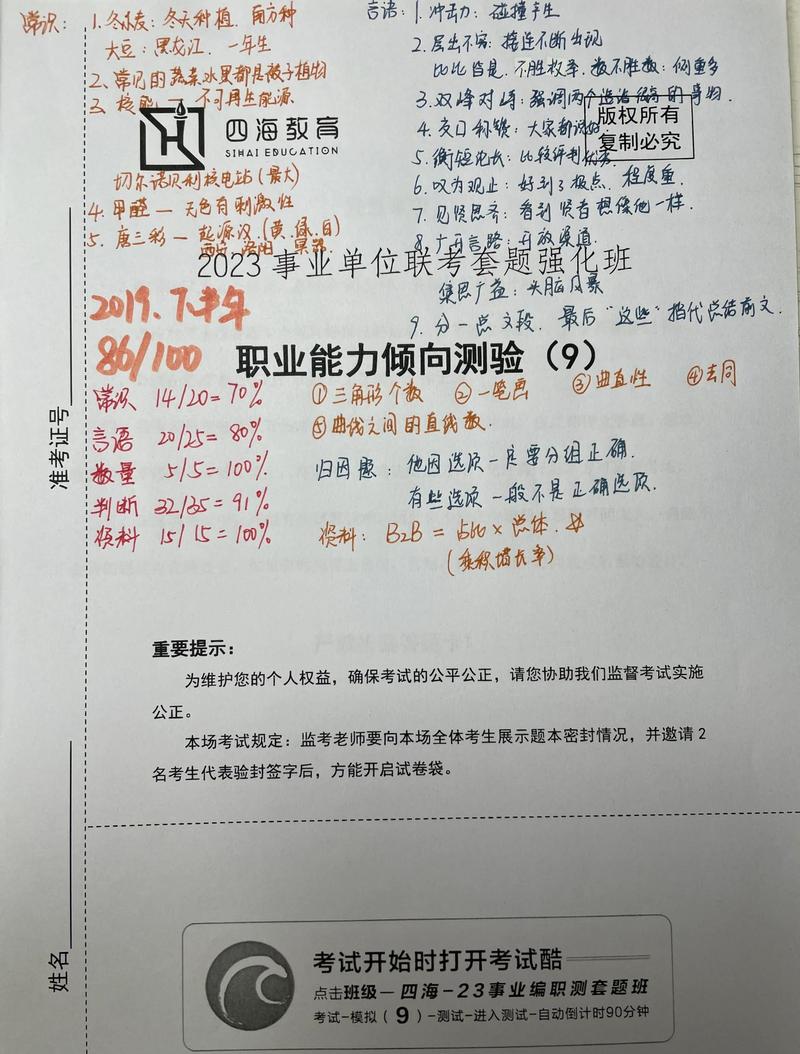 常识：
1. 冬小麦：冬天种植．南方种
大豆：黑龙江．一年生
2、常见的蔬菜水果都是被子植物
3、核能 — 不可再生能源
切尔诺贝利核电站（最大）
4. 甲醛 — 无色有刺激性
5. 唐三彩 — 起源汉（黄．绿．白）
西安 洛阳
言语：1. 冲击力：碰撞产生
2. 层出不穷：接连不断出现
比比皆是．不胜枚举．数不胜数：侧重多
3. 双峰对峙：强调两个
的事物．
4. 交口称赞：大家都说好
5. 衡短论长：比较评判优劣
6. 叹为观止：好到了极点．程度重．
7. 见贤思齐：看到贤者想像他一样．
8. 广开言路：开放渠道．
集思广益：头脑风暴
9. 分—总文段．最后“这些”指代总结前文．
四海教育
SIHAI EDUCATION
版权所有
复制必究
2023事业单位联考套题强化班
2019.下半年
86/100
职业能力倾向测验（9）
常识 14/20=70%
言语 20/25=80%
数量 5/5=100%
判断 32/35=91%
资料 15/15=100%
①三角形个数 ②一笔画 ③曲直性 ④去同
⑤曲线之间的直线数．
归因题：他因选项一定要分组正确．
有些选项一般不是正确选项．
资料：B2B = 占比×总体．
（乘积增长率）
准考证号
姓名
重要提示：
为维护您的个人权益，确保考试的公平公正，请您协助我们监督考试实施
公正。
本场考试规定：监考老师要向本场全体考生展示题本密封情况，并邀请2
名考生代表验封签字后，方能开启试卷袋。
考试开始时打开考试酷
点击班级—四海-23事业编职测套题班
考试-模拟（9）-测试-进入测试-自动倒计时90分钟